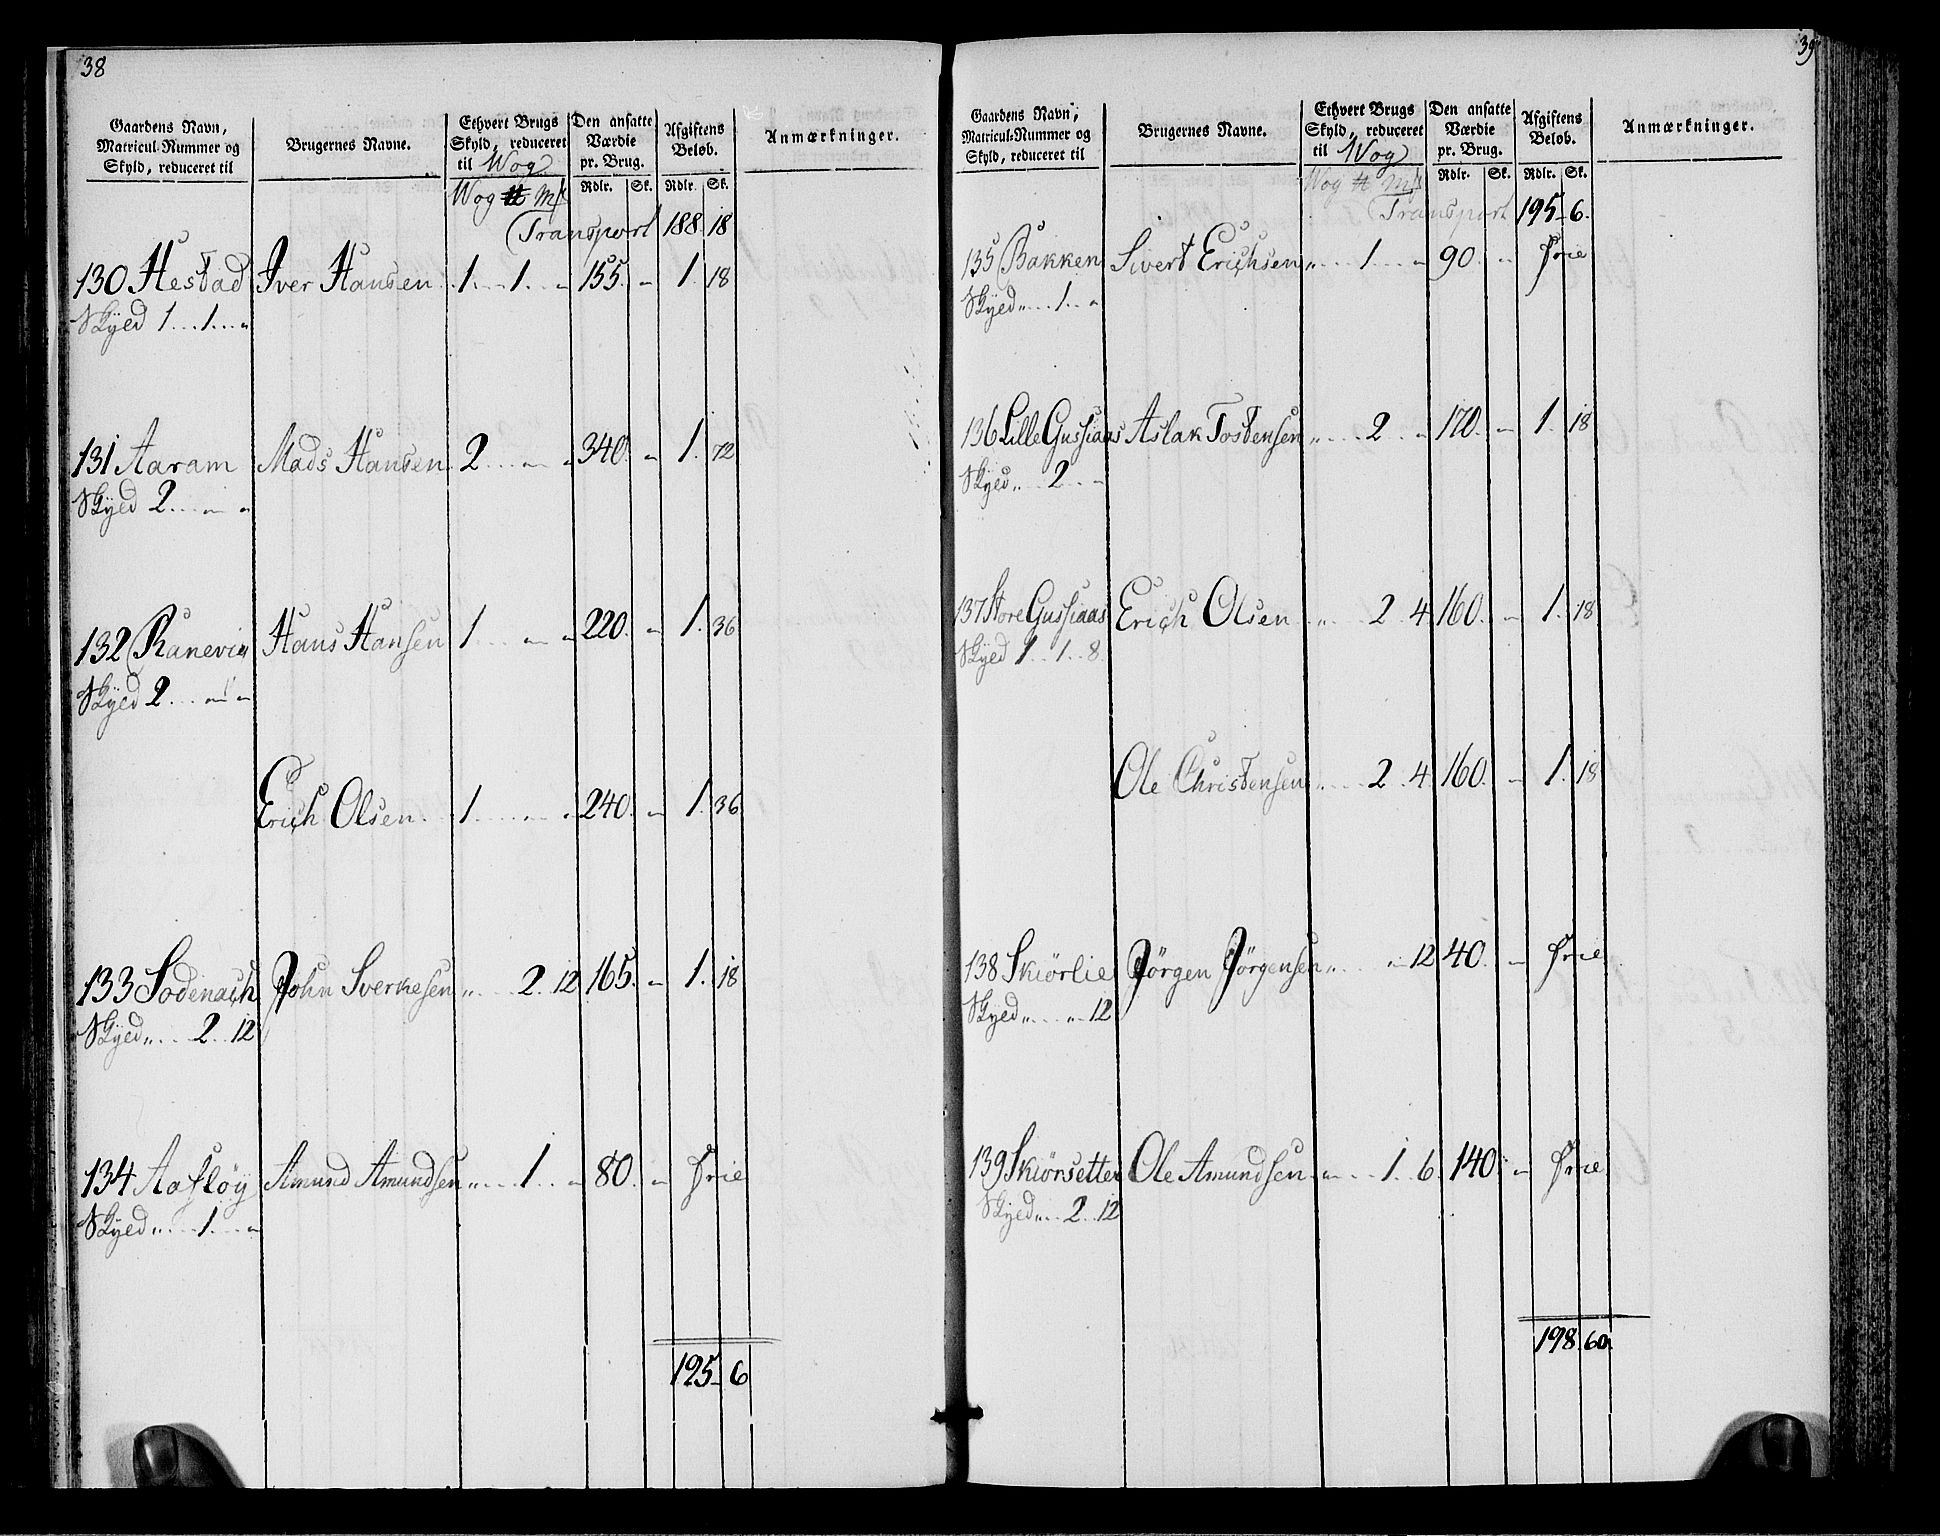 38
Gaardens Navn, Matricul-Nummer og Skyld, reduceret til
Brugernes Navne.
Ethvert Brugs Skyld, reduceret til Wog
Den ansatte Værdie pr. Brug.
Afgiftens Beløb.
Anmærkninger.
Wog ℔ Mk Rdlr. Sk. Rdlr. Sk.
Transport 188 18
130 Hestad Iver Hansen 1 1 " 155 " 1 18
Skyld 1 1 "
131 Aaram Mads Hansen 2 " " 340 " 1 72
Skyld 2 " "
132 Ranevig Hans Hansen 1 " " 220 " 1 36
Skyld 2 " "
Erich Olsen 1 " " 240 " 1 36
133 Sodenach John Sverkesen " 2 12 165 " 1 18
Skyld " 2 12
134 Aafløy Amund Amundsen " 1 " 80 " Frie
Skyld " 1 "
195 6
39
Gaardens Navn, Matricul-Nummer og Skyld, reduceret til
Brugernes Navne.
Ethvert Brugs Skyld, reduceret til Wog
Den ansatte Værdie pr. Brug.
Afgiftens Beløb.
Anmærkninger.
Wog ℔ Mk Rdlr. Sk. Rdlr. Sk.
Transport 195 6
135 Bakken Sivert Erichsen " 1 " 90 " Frie
Skyld " 1 "
136 Lille Gussiaas Aslak Tostensen " 2 " 170 " 1 18
Skyld " 2 "
137 Store Gussiaas Erich Olsen " 2 4 160 " 1 18
Skyld 1 1 8
Ole Christensen " 2 4 160 " 1 18
138 Skiørlie Jörgen Jörgensen " " 12 40 " Frie
Skyld " " 12
139 Skiörsetter Ole Amundsen " 1 6 140 " Frie
Skyld " 2 12
198 60